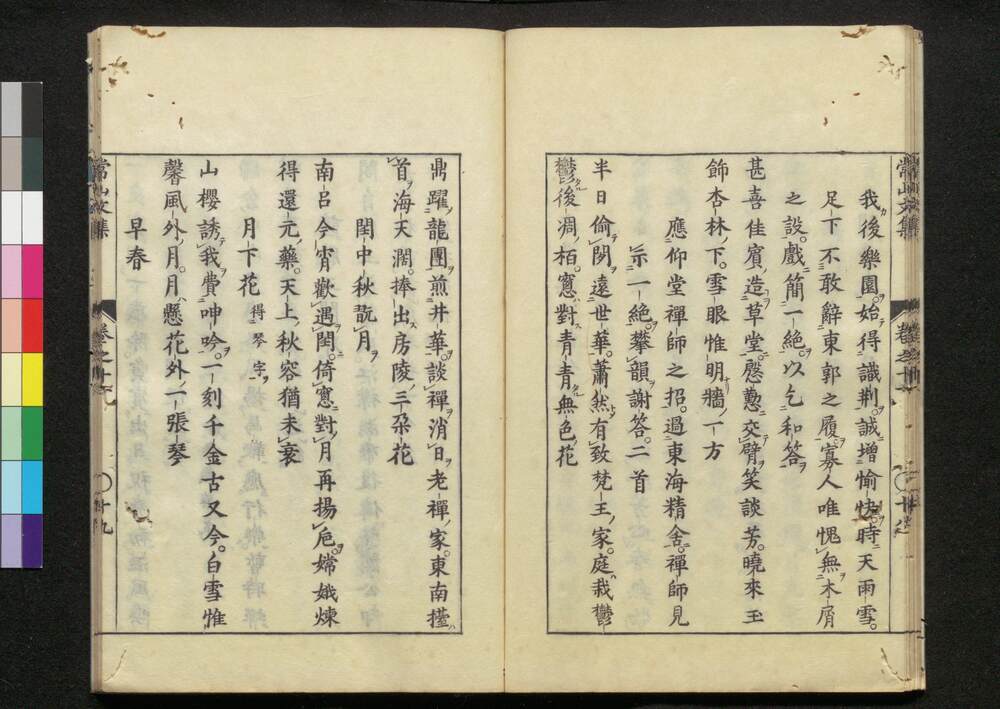 我後樂園始得識荆誠增愉快時天雨雪
足下不敢辭東郭之履寡人唯愧無木屑
之設戲簡一絶以乞和答
甚喜佳賓造草堂慇懃交臂笑談芳曉來玉
飾杏林下雪眼惟明牆一方
應仰堂禪師之招過東海精舍禪師見
示一絶攀韻謝答二首
半日偷閑遠世華蕭然有致梵王家庭莪鬱
鬱後凋栢窻對青青無色花
常山文集
卷之十
十九
鼎躍龍團煎井華談禪消日老禪家東南擡
首海天濶捧出房陵三朶花
閏中秋翫月
南呂今宵歡遇閏倚窻對月再揚巵嫦娥煉
得還元藥天上秋容猶未衰
月下花 得琴字
山櫻誘我費呻吟一刻千金古又今白雪惟
馨風外月月懸花外一張琴
早春